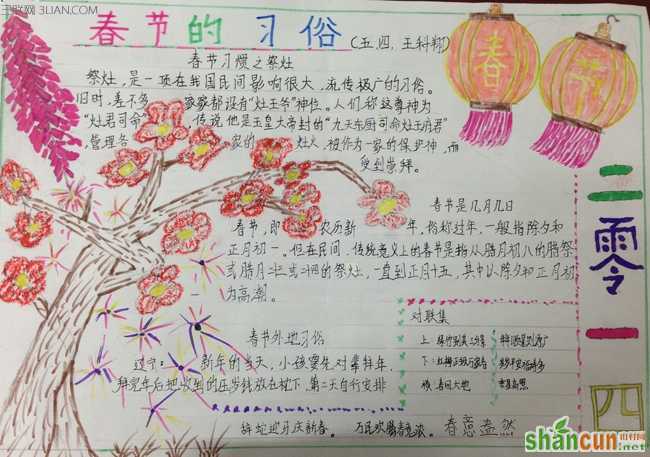 三联网 3LIAN.COM
春节的习俗
(五.四.王科
春节习惯之祭灶
祭灶,是一项在我国民间影响很大,流传极广的习俗。
旧时,差不多 家家都设有"灶王爷"神位。人们称这尊神为
"灶君司命" 传说他是玉皇大帝封的"九天东厨司命灶王府君"
管理各 家的 灶火,被作为一家的保护神,而
受到崇拜。
春 节
春节是几月几日
春节,即 农历新 年,俗称过年,一般指除夕和
正月初一。但在民间,传统意义上的春节是指从腊月初八的腊祭
或腊月 的祭灶,一直到正月十五,其中以除夕和正月初
为高潮。
二零一四
春节外地习俗
辽宁: 新年的当天,小孩要先对辈拜年,
拜完年后把收到的压岁钱放在枕下,第二天自行安排
对联集
上:
下:
横:春回大地
辞蛇迎马庆新春。 万民欢腾春意浓。 春意盎然
shancun
.net